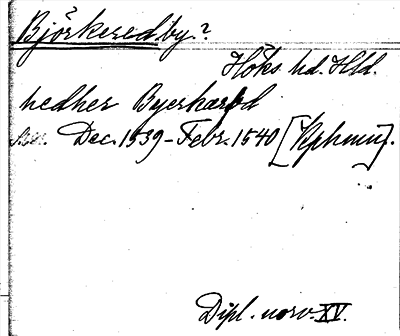 Björkeredby?
Höks hd. Hld.
nedher Byerkarød
Dec. 1539 – Febr. 1540 [Kphmn].
Dipl. norv. XV.